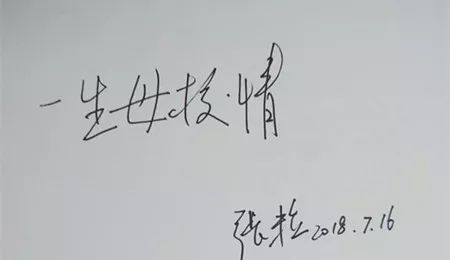 一生母校情
张 2018.7.16